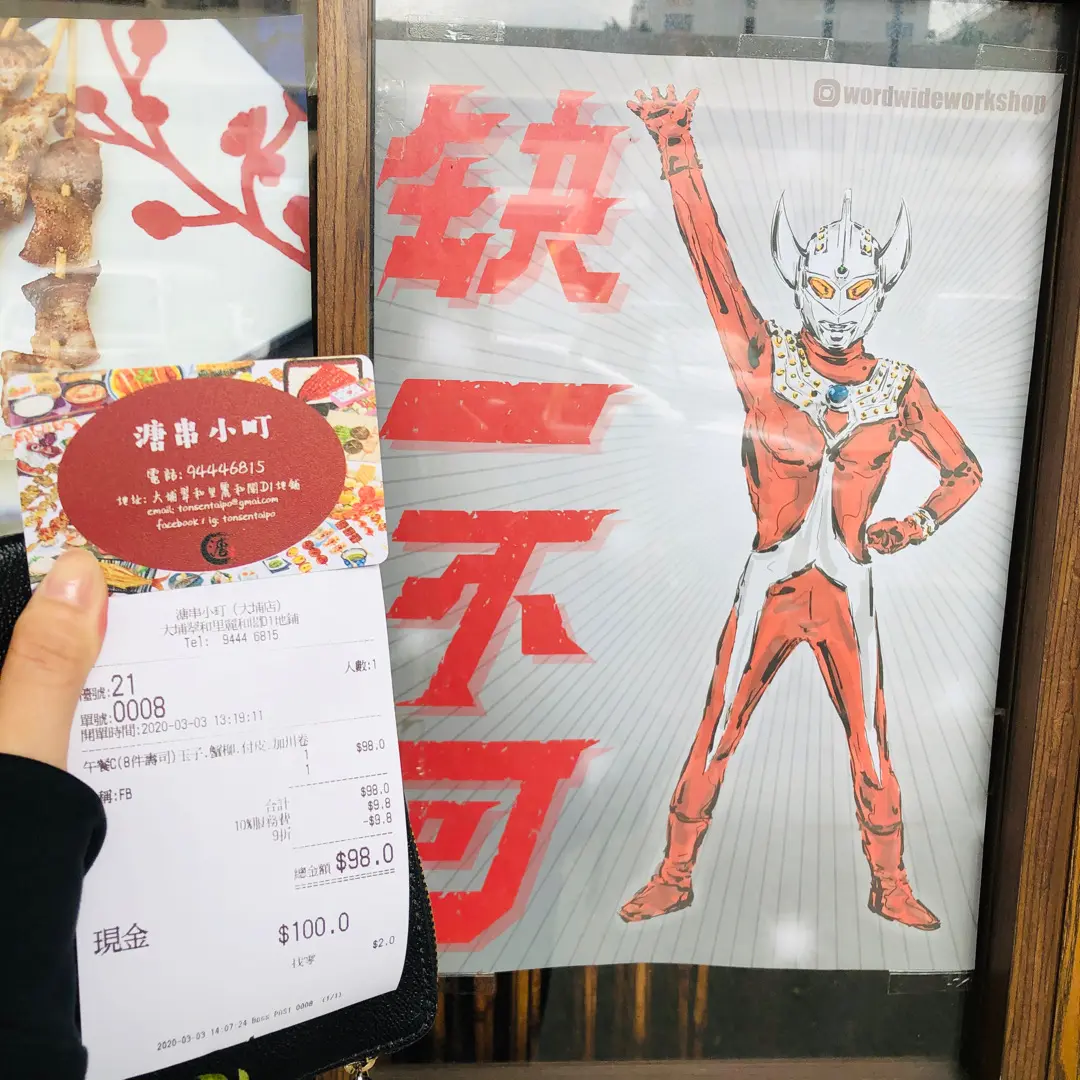 wordwideworkshop
缺一不可
溏串小町
電話: 94446815
地址: 大埔翠和里麗和閣D1地舖
email: tonsentaipo@gmai.com
facebook / ig: tonsentaipo
溏串小町 (大埔店)
大埔翠和里麗和閣D1地舖
Tel: 9444 6815
人數:1
檯號:21
單號:0008
開單時間:2020-03-03 13:19:11
午餐C(8件壽司) 玉子.蟹柳.付皮.加川卷
1 $98.0
1
稱:FB
合計 $98.0
10%服務費 $9.8
9折 -$9.8
總金額 $98.0
現金 $100.0
找零 $2.0
2020-03-03 14:07:24 Boss POS1 0008 (1/1)